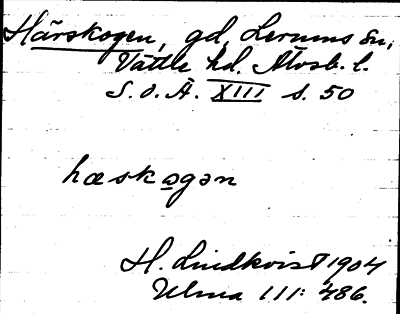 Härskogen, gd, Lerums sn,
Vättle hd. Älvsb. l.
S. O. Ä. XIII s. 50
hæskagən
H. Lindkvist 1904
Ulma 111: 486.